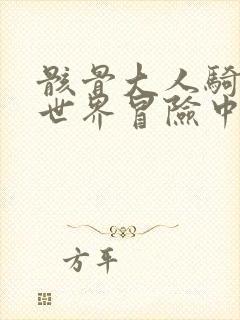 骸骨大人騎
世界冒險中
方平